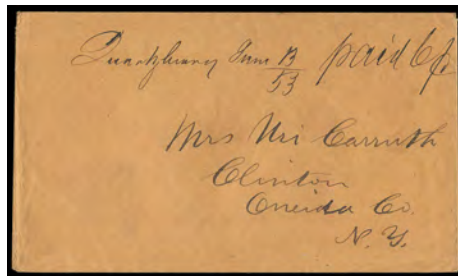 Quartzburg June 13/53 paid 6c
Mrs Uri Carruth
Clinton
Oneida Co.
N. Y.